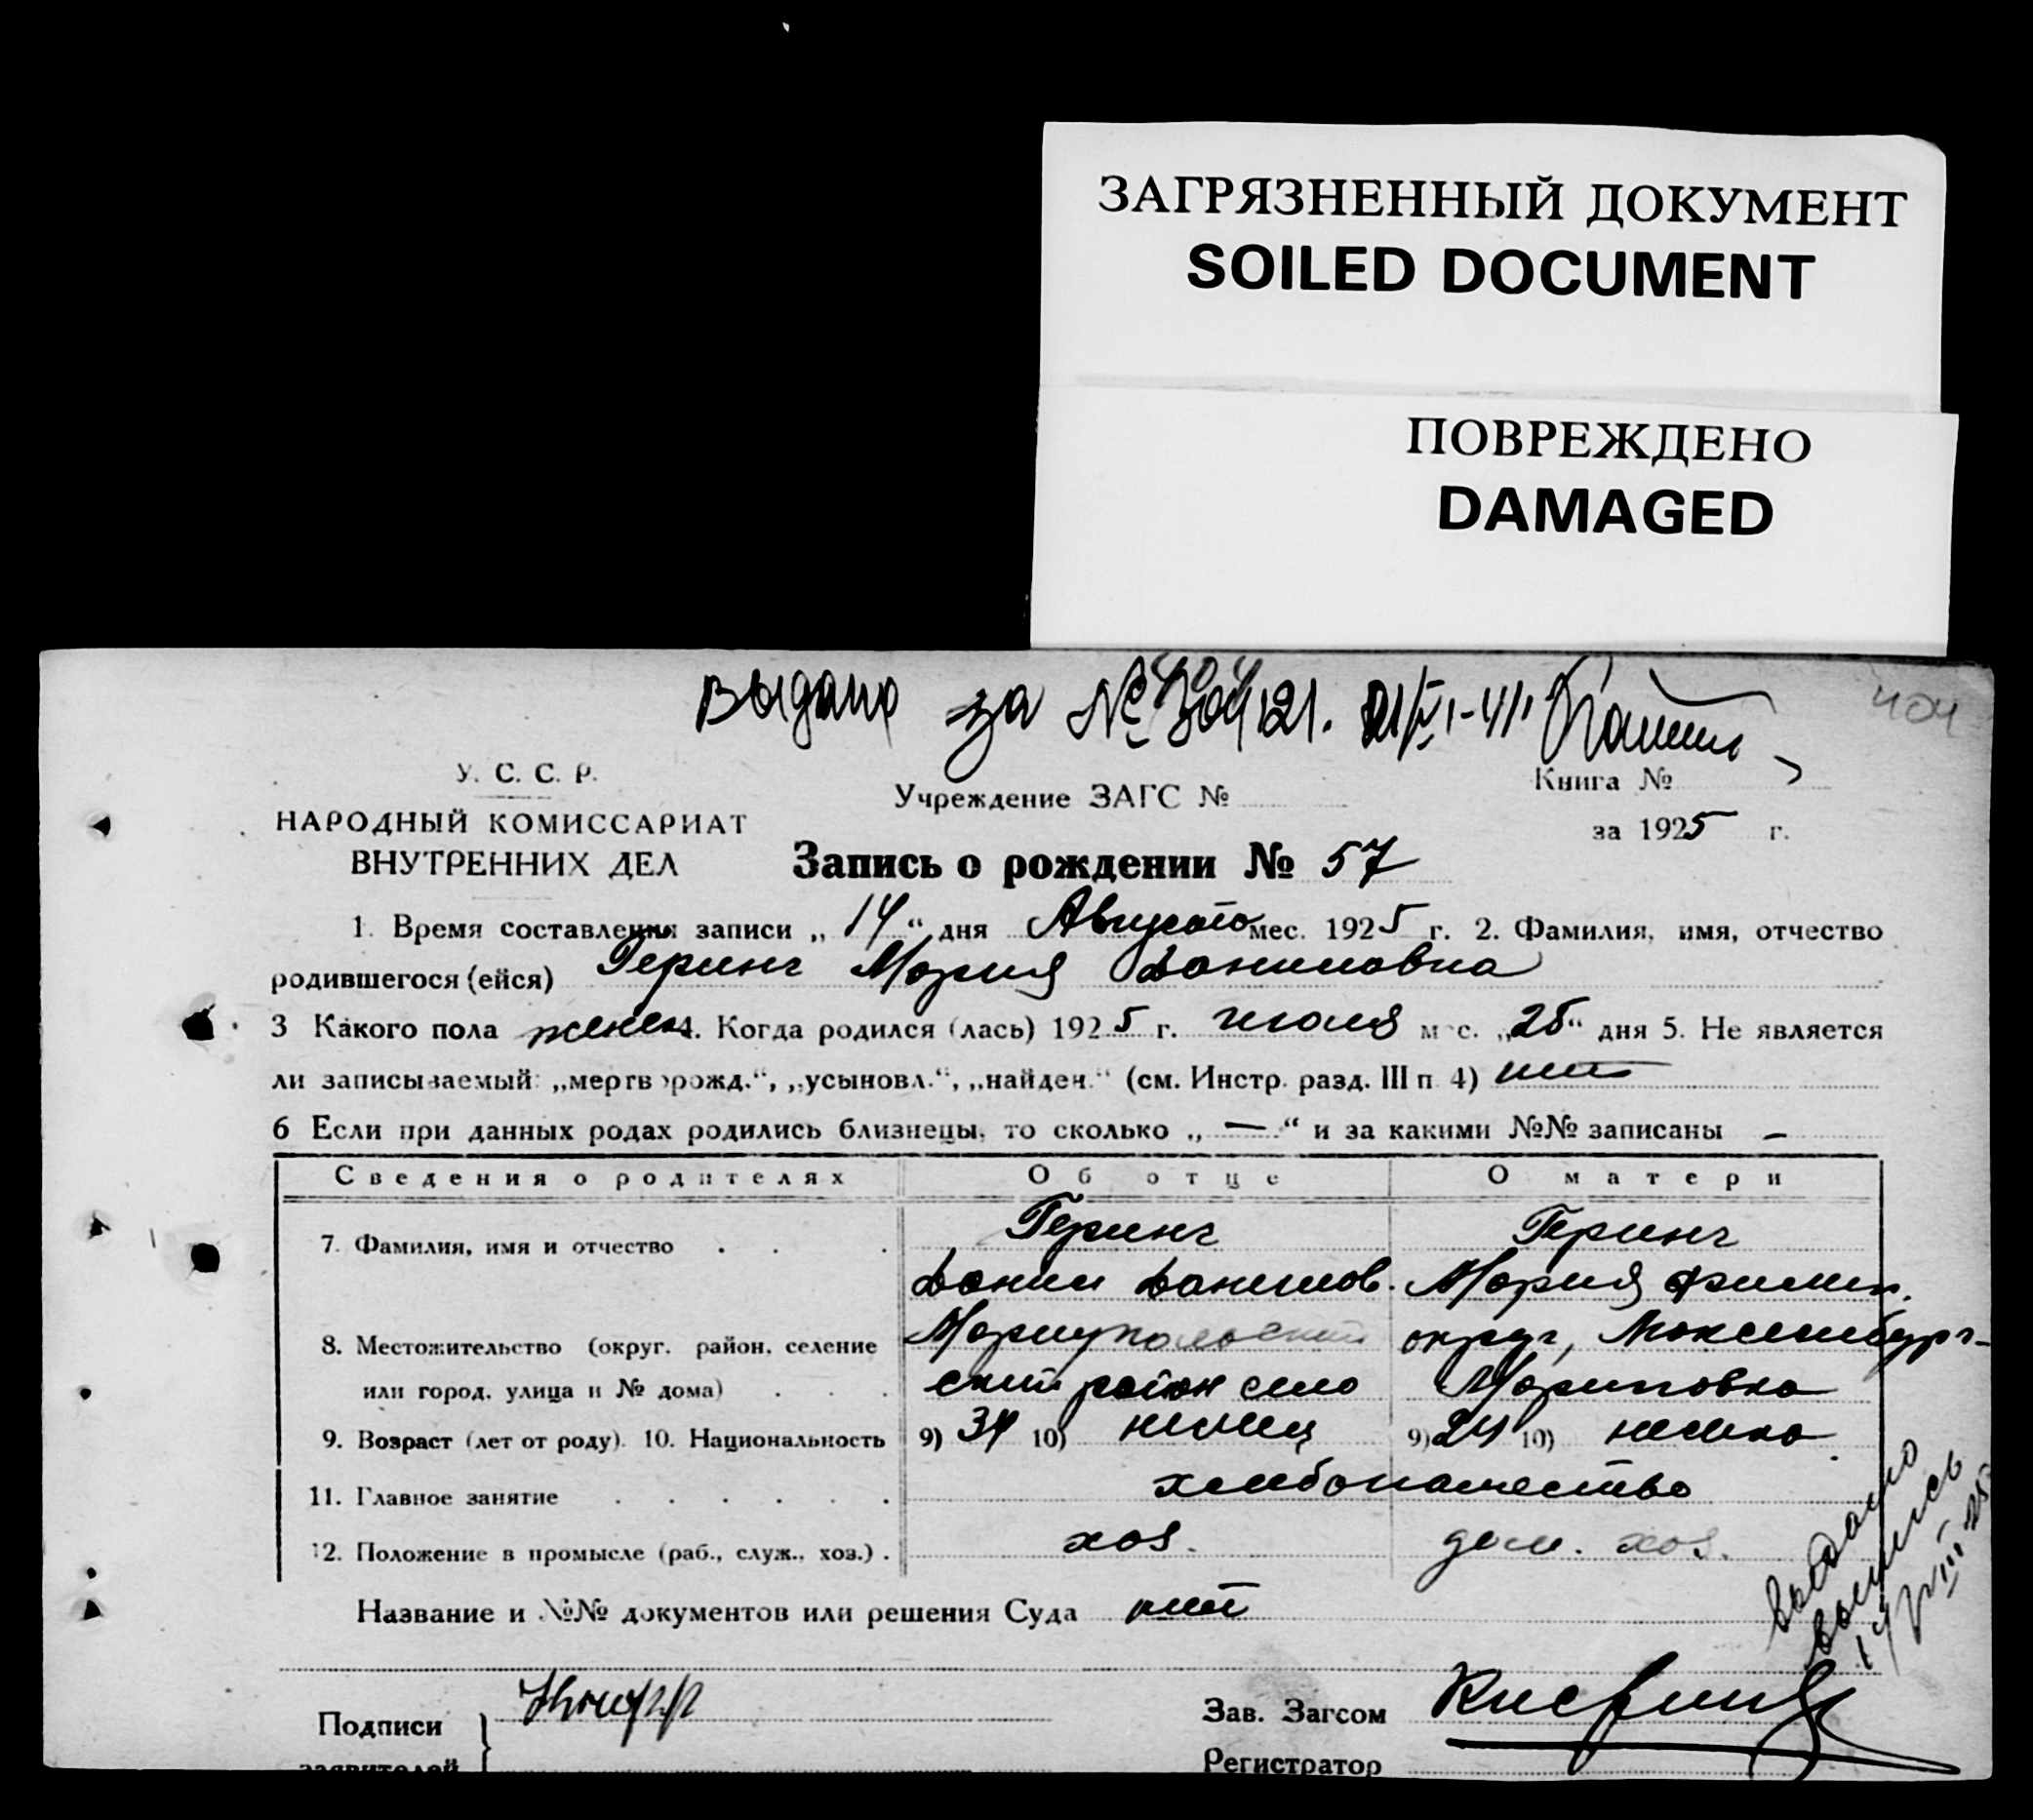 ЗАГРЯЗНЕННЫЙ ДОКУМЕНТ
SOILED DOCUMENT
ПОВРЕЖДЕНО
DAMAGED
404
Выдано за №
У. С. С. Р.
НАРОДНЫЙ КОМИССАРИАТ
ВНУТРЕННИХ ДЕЛ
Учреждение ЗАГС №
Книга №
за 1925 г.
Запись о рождении № 57
1. Время составления записи „14“ дня Августа мес. 1925 г. 2. Фамилия, имя, отчество
родившегося (ейся) Геринг Мария Даниловна
3 Какого пола женск 4. Когда родился (лась) 1925 г. июля мес. „25“ дня 5. Не является
ли записываемый: „мертворожд.“, „усыновл.“, „найден.“ (см. Инстр. разд. III п 4) нет
6 Если при данных родах родились близнецы, то сколько „—“ и за какими №№ записаны —
Сведения о родителях Об отце О матери
7. Фамилия, имя и отчество Геринг Геринг
Данил Данилов. Мария Филип.
8. Местожительство (округ, район, селение Мариупольский округ, Люксембург-
или город, улица и № дома) ский район село
9. Возраст (лет от роду). 10. Национальность 9) 34 10) немец 9) 24 10) немка
11. Главное занятие хлебопашество
12. Положение в промысле (раб., служ., хоз.) хоз. дом. хоз.
Название и №№ документов или решения Суда нет
выдано
выпись
14/VIII 25
Подписи
заявителей
Зав. Загсом
Регистратор